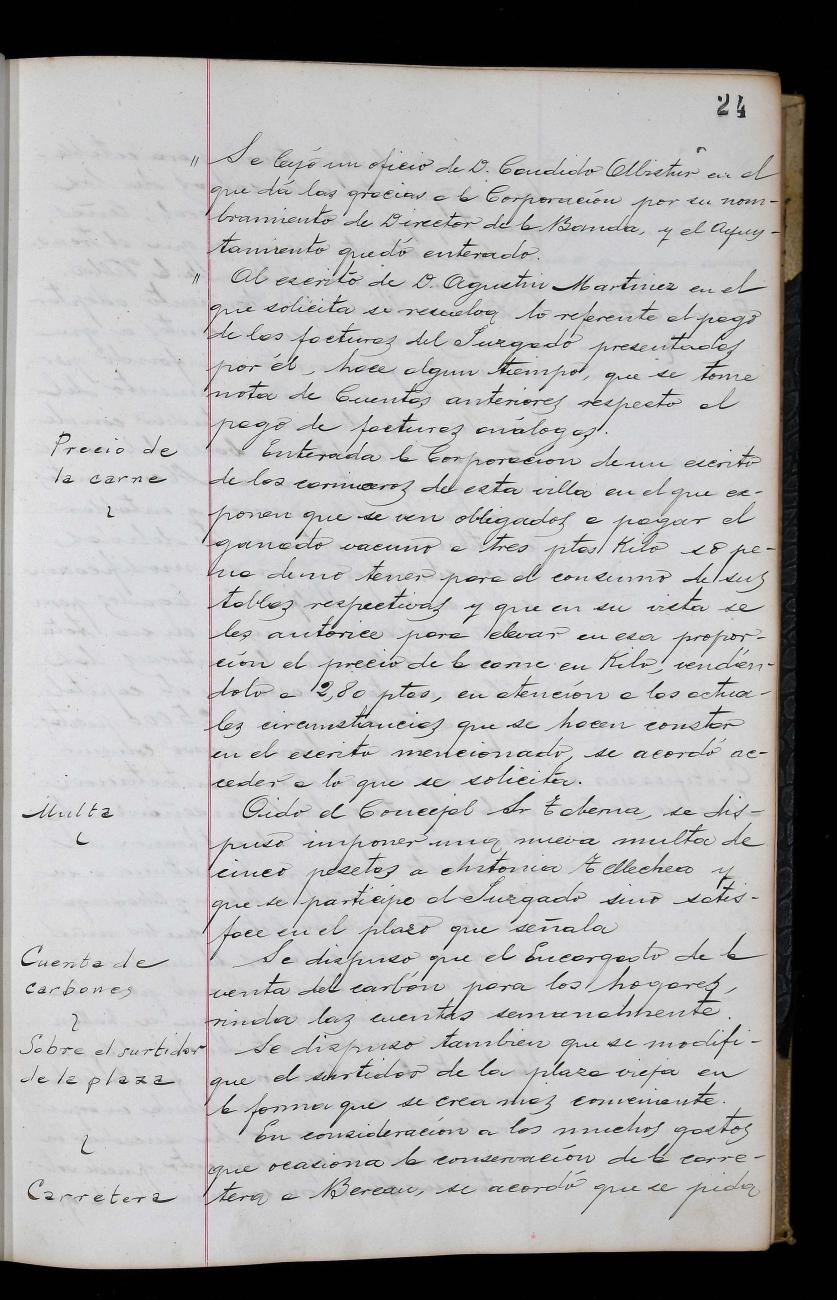 24
" Se leyó un oficio de D. Candido Olbistur en el
que dá las gracias a la Corporación por su nom-
bramiento de Director de la Banda, y el Ayun-
tamiento quedó enterado.
" Al escrito de D. Agustin Martinez en el
que solicita se resuelva lo referente al pago
de las facturas del Juzgado presentadas
por él, hace algun tiempo, que se tome
nota de Cuentas anteriores respecto al
pago de facturas análogas.
Precio de
la carne
Enterada la Corporación de un escrito
de los carniceros de esta villa en el que ex-
ponen que se ven obligados a pagar el
ganado vacuno a tres ptas Kilo só pe-
na de no tener para el consumo de sus
tablas respectivas y que en su vista se
les autorice para elevar en esa propor-
ción el precio de la carne en Kilo, vendién-
dolo a 2,80 ptas, en atención a las actua-
les circunstancias que se hacen constar
en el escrito mencionado, se acordó ac-
ceder a lo que se solicita.
Multa
Oido el Concejal Sr Echerna, se dis-
puso imponer una nueva multa de
cinco pesetas a Antonia Tellechea y
que se participe al Juzgado sino satis-
face en el plazo que señala
Cuenta de
carbones
Se dispuso que el Encargado de la
venta del carbón para los hogares,
rinda las cuentas semanalmente.
Sobre el surtidor
de la plaza
Se dispuso tambien que se modifi-
que el surtidor de la plaza vieja en
la forma que se crea mas conveniente.
Carretera
En consideración a los muchos gastos
que ocasiona la conservación de la carre-
tera a Bereau, se acordó que se pida